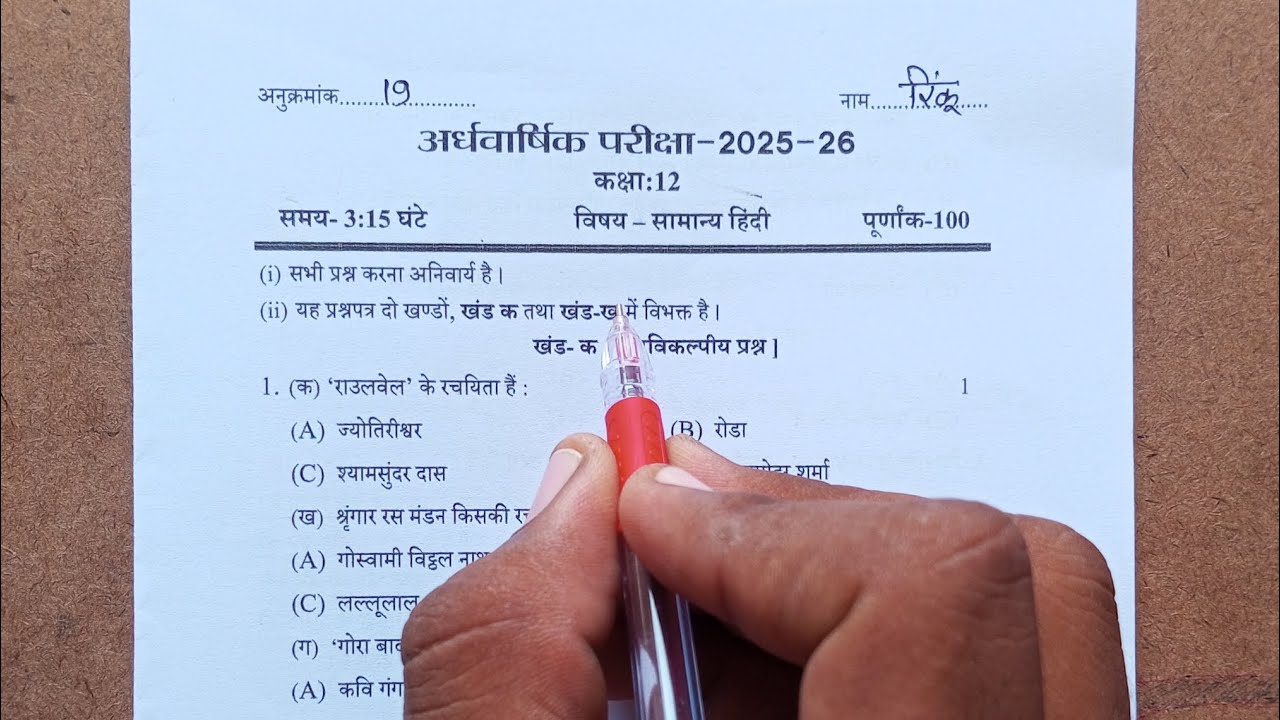 अनुक्रमांक........19............ नाम....रिंकू.....
अर्धवार्षिक परीक्षा-2025-26
कक्षा:12
समय- 3:15 घंटे विषय – सामान्य हिंदी पूर्णांक-100
(i) सभी प्रश्न करना अनिवार्य है।
(ii) यह प्रश्नपत्र दो खण्डों, खंड क तथा खंड-ख में विभक्त है।
खंड- क विकल्पीय प्रश्न ]
1. (क) ‘राउलवेल’ के रचयिता हैं : 1
(A) ज्योतिरीश्वर (B) रोडा
(C) श्यामसुंदर दास शर्मा
(ख) श्रृंगार रस मंडन किसकी
(A) गोस्वामी विट्ठल
(C) लल्लूलाल
(ग) ‘गोरा
(A) कवि गंग